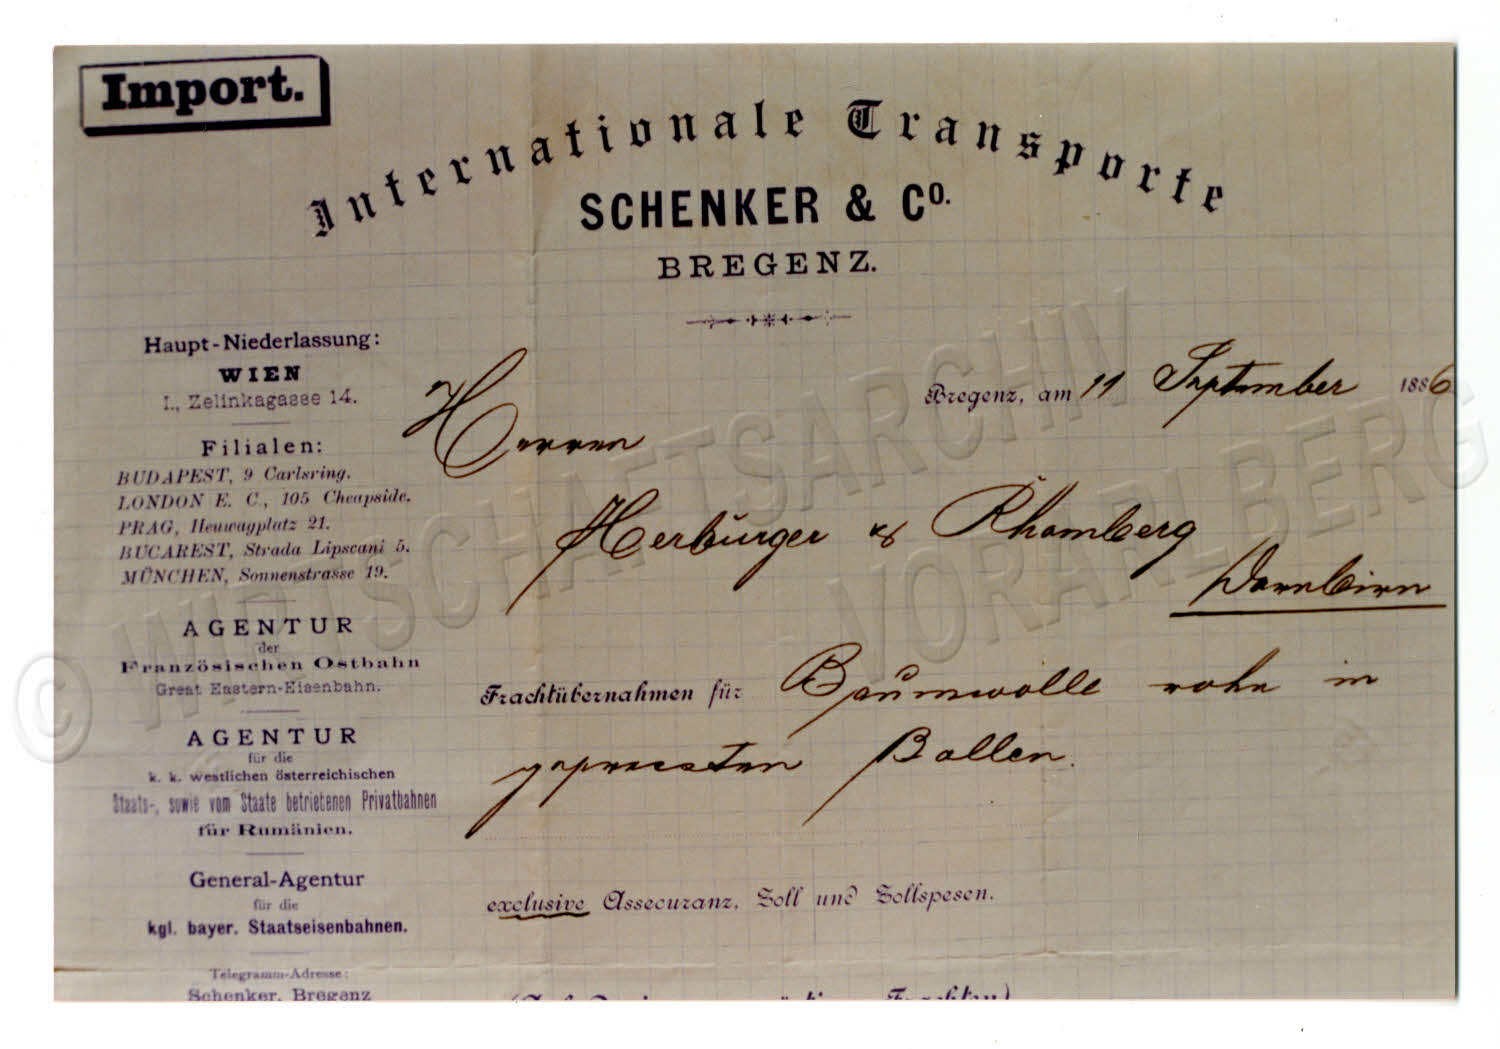 Import.
Internationale Transporte
SCHENKER & Co.
BREGENZ.
Haupt-Niederlassung:
WIEN
I., Zelinkagasse 14.
Filialen:
BUDAPEST, 9 Carlsring.
LONDON E. C., 105 Cheapside.
PRAG, Heuwagplatz 21.
BUCAREST, Strada Lipscani 5.
MÜNCHEN, Sonnenstrasse 19.
AGENTUR
der
Französischen Ostbahn
Great Eastern-Eisenbahn.
AGENTUR
für die
k. k. westlichen österreichischen
Staats-, sowie vom Staate betriebenen Privatbahnen
für Rumänien.
General-Agentur
für die
kgl. bayer. Staatseisenbahnen.
Telegramm-Adresse:
Schenker, Bregenz
Bregenz, am 11 September 1886
Herren
Herburger & Rhomberg
Dornbirn
Frachtübernahmen für Baumwolle rohe in
gepressten Ballen.
exclusive Assecuranz, Zoll und Zollspesen.
Frachten)
© WIRTSCHAFTSARCHIV
VORARLBERG